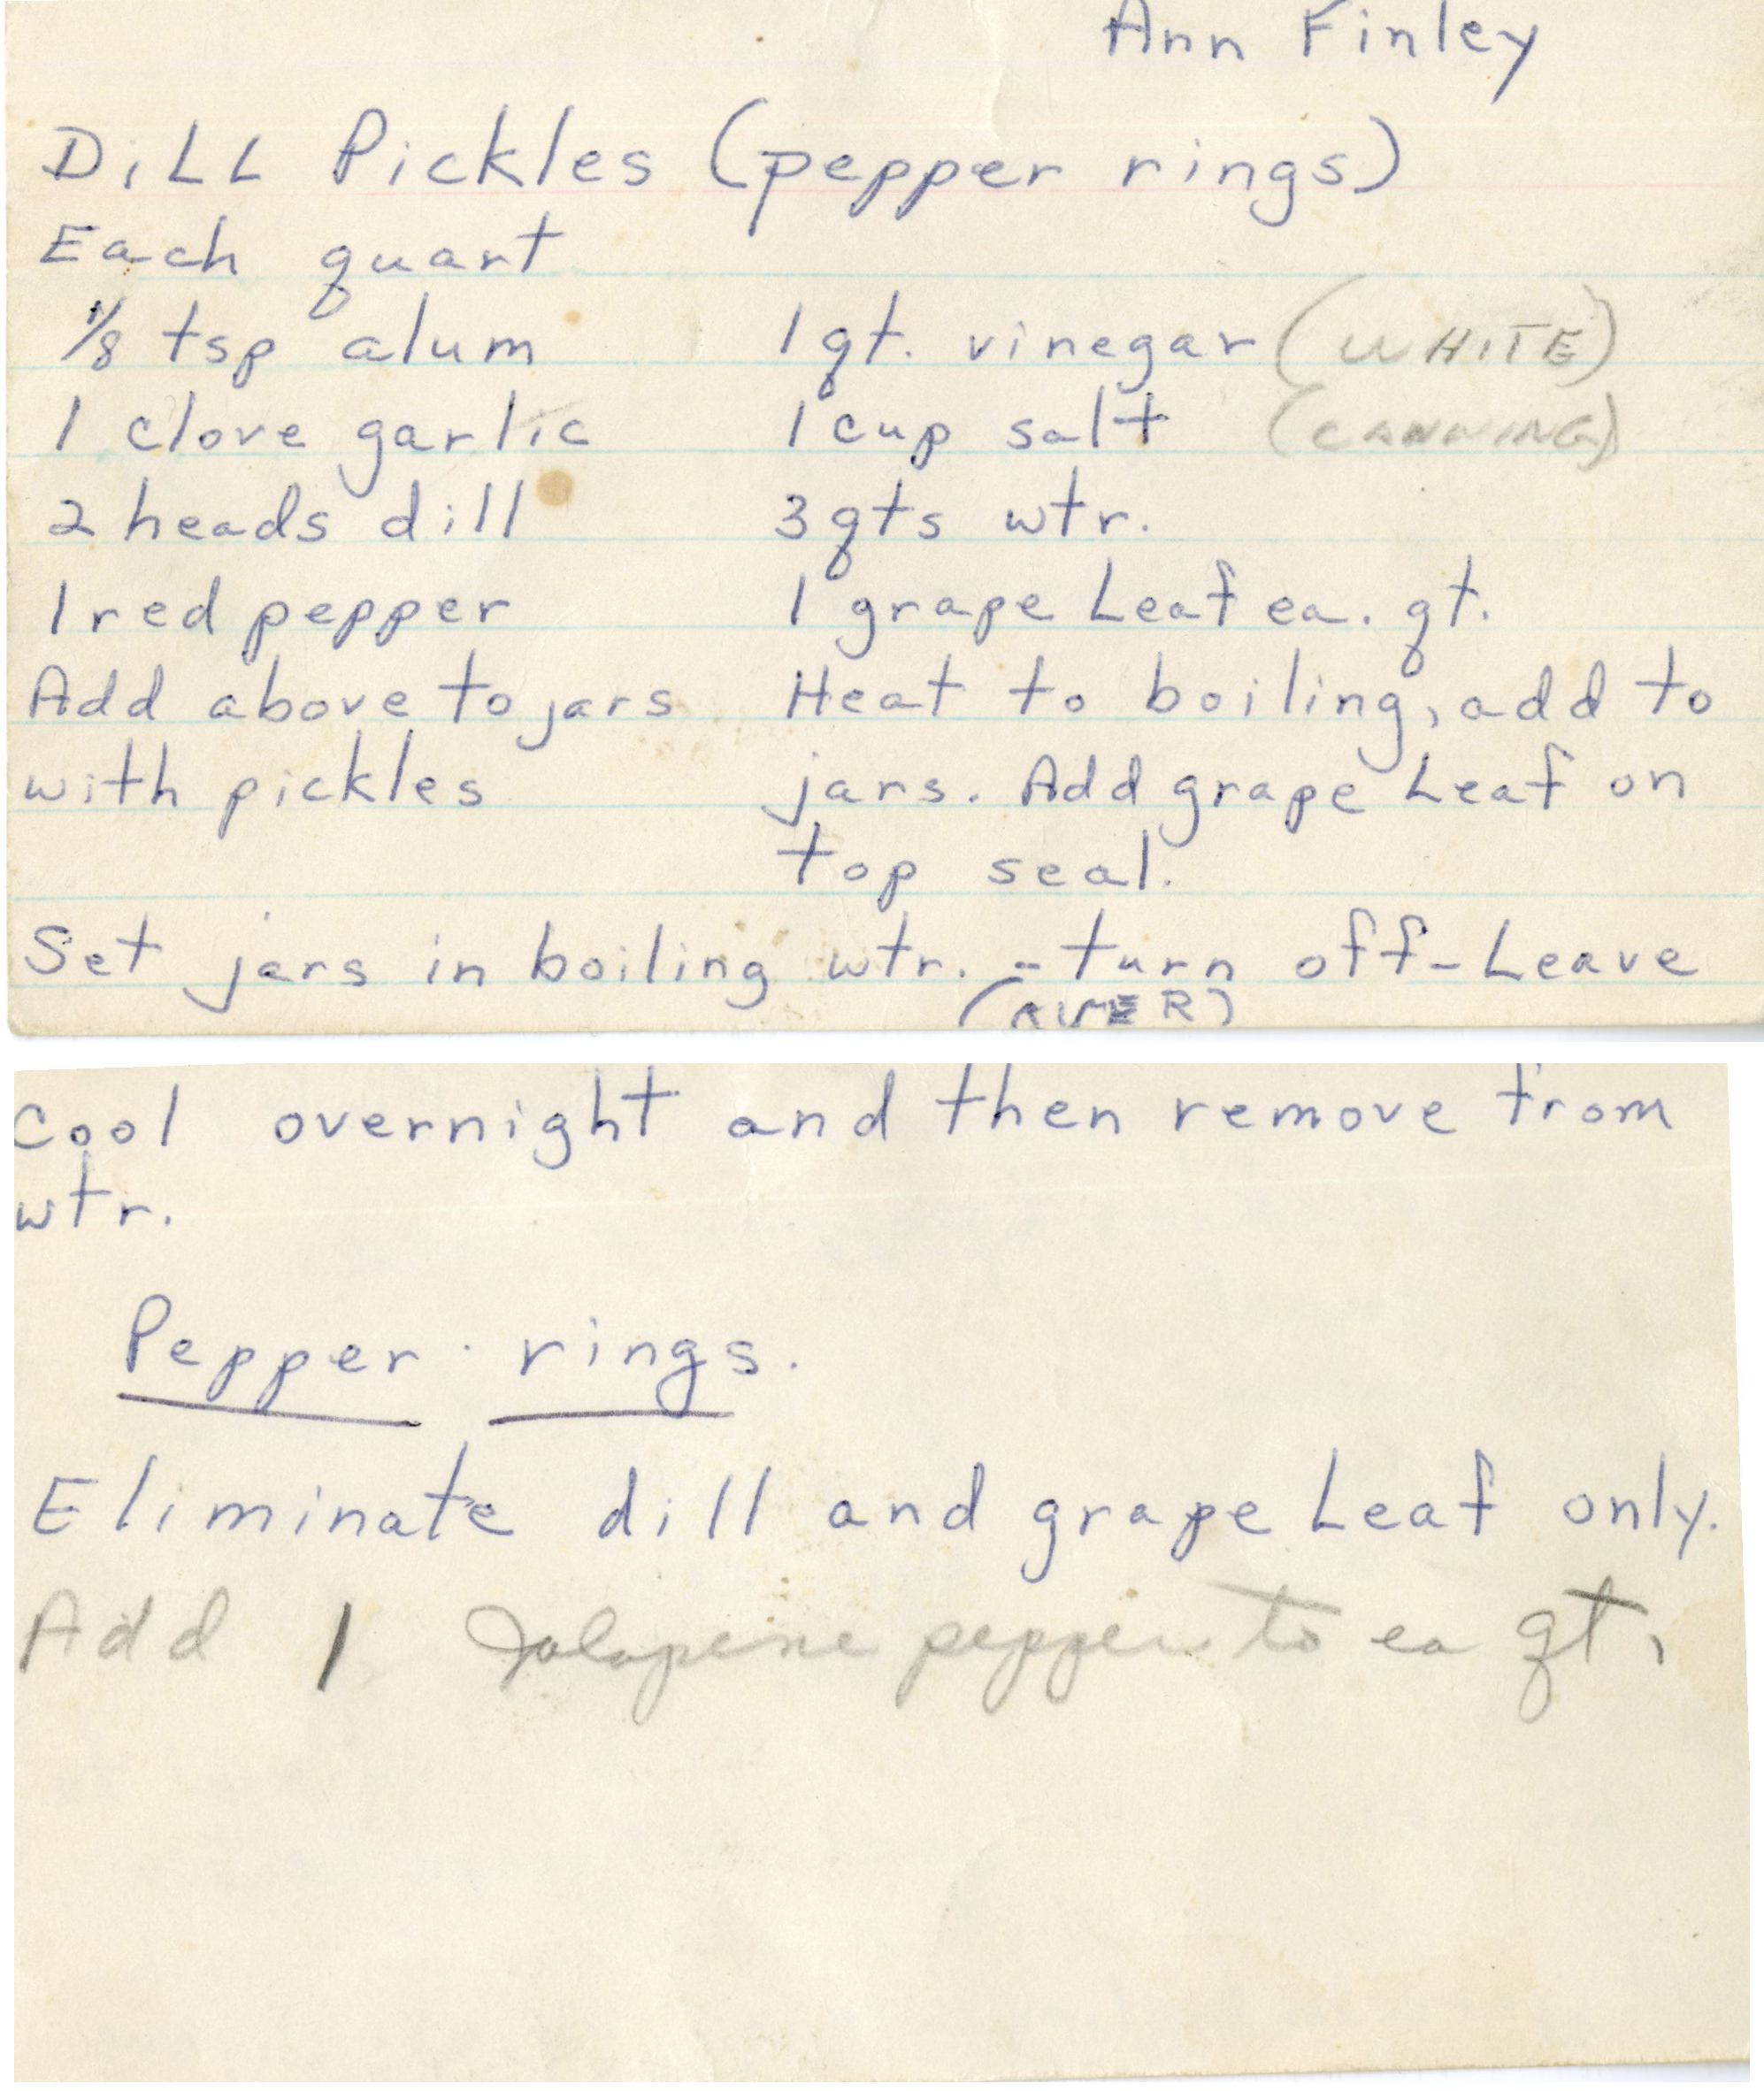 Ann Finley
Dill Pickles (pepper rings)
Each quart
1/8 tsp alum
1 clove garlic
2 heads dill
1 red pepper
Add above to jars
with pickles
1 qt. vinegar (WHITE)
1 cup salt (CANNING)
3 qts wtr.
1 grape Leaf ea. qt.
Heat to boiling, add to
jars. Add grape Leaf on
top seal.
Set jars in boiling wtr. - turn off - Leave
(OVER)
cool overnight and then remove from
wtr.
Pepper rings.
Eliminate dill and grape Leaf only.
Add 1 Jalapene pepper to ea qt.